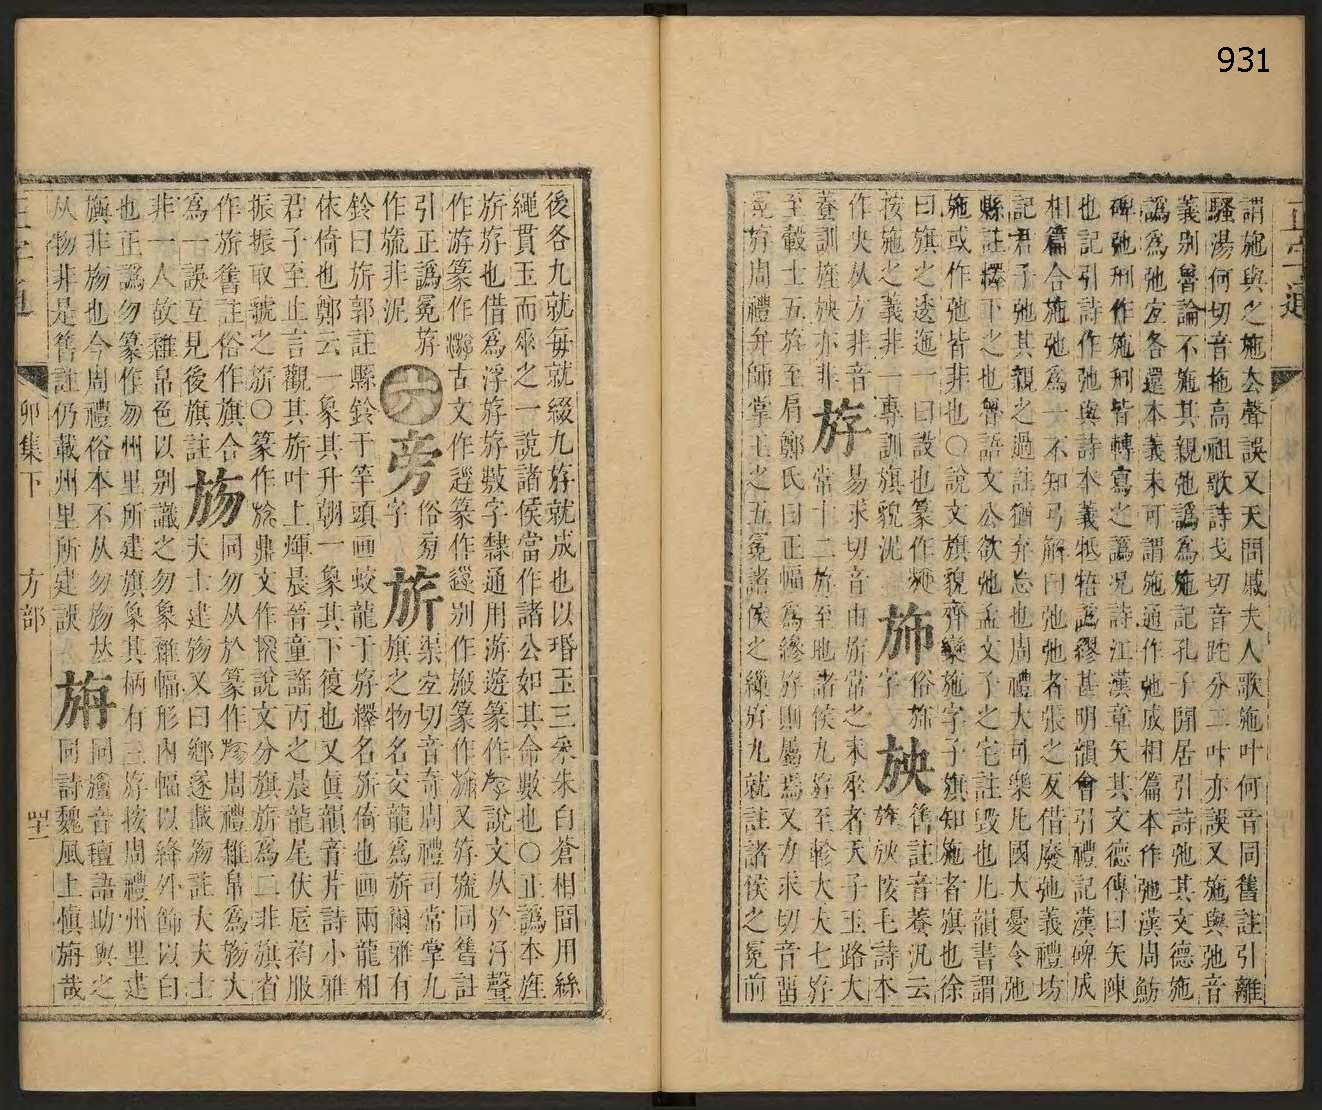 931
正字通
謂施與之施去聲誤又天問戚夫人歌施叶何音同舊註引離
騷湯何切音拖高祖歌詩戈切音𨈭分二叶亦誤又施與弛音
義別魯論不施其親弛譌爲施記孔子閒居引詩弛其文德施
譌爲弛宜各還本義未可謂施通作弛成相篇本作弛漢周魴
碑弛刑作施刑皆轉寫之譌況詩江漢章矢其文德傳曰矢陳
也記引詩作弛與詩本義牴牾譌繆甚明韻會引禮記漢碑成
相篇合施弛爲一不知弓解曰弛弛者張之反借廢弛義禮坊
記君子弛其親之過註猶弃忘也周禮大司樂凡國大憂令弛
縣註釋下之也魯語文公欲弛孟文子之宅註毀也凡韻書謂
施或作弛皆非也○說文旗貌齊欒施字子旗知施者旗也徐
曰旗之逶迤一曰設也篆作
按施之義非一專訓旗貌泥
斾俗旆字
舊註音養汎云
旌按毛詩本
作央从方非音
養訓旌亦非
斿易求切音由旂常之末垂者天子玉路大常十二斿至地諸侯九斿至軫大夫七斿
至轂士五斿至肩鄭氏曰正幅爲縿斿則屬焉又力求切音留
冕斿周禮弁師掌王之五冕諸侯之繅斿九就註諸侯之冕前
後各九就每就綴九斿就成也以瑉玉三采朱白蒼相間用絲
繩貫玉而垂之一說諸侯當作諸公如其命數也○正譌本旌
旂斿也借爲浮斿斿敖字隸通用游遊篆作說文从㫃汓聲
作游篆作古文作篆作別作篆作又斿旒同舊註
引正譌冕斿作旒非泥
六
旁俗㫄字
旂渠宜切音奇周禮司常掌九旗之物名交龍爲旂爾雅有
鈴曰旂郭註縣鈴于竿頭画蛟龍于斿釋名旂倚也画兩龍相
依倚也鄭云一象其升朝一象其下復也又眞韻音芹詩小雅
君子至止言觀其旂叶上煇晨晉童謡丙之晨龍尾伏辰袀服
振振取虢之旂○篆作鼎文作說文分旗旂爲二非旗省
作旂舊註俗作旗合
爲一誤互見後旗註
𣃦同勿从㫃篆作周禮雜帛爲物大夫士建物又曰鄉遂載物註大夫士
非一人故雜帛色以別識之勿象雜幅形內幅以絳外飾以白
也正譌勿篆作勿州里所建旗象其柄有三斿按周禮州里建
旟非物也今周禮俗本不从勿
从物非是舊註仍載州里所建誤
旃同旜音詀助與之同詩魏風上愼旃哉
正字通
卯集下
方部